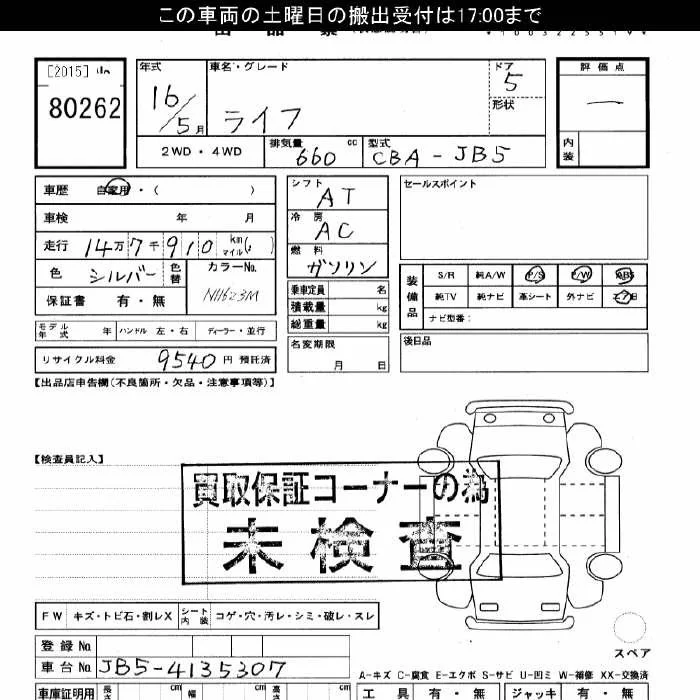 この車両の土曜日の搬出受付は17:00まで
[2015]
80262
年式
16/5月
車名・グレード
ライフ
ドア
5
形状
評価点
一
内装
2WD・4WD
排気量 660 cc
型式 CBA-JB5
車歴 自家用・( )
車検 年 月
走行 14万7千910 km マイル( )
色 シルバー 色替
カラーNo. NH623M
保証書 有・無
シフト AT
冷房 AC
燃料 ガソリン
乗車定員 名
積載量 kg
総重量 kg
セールスポイント
装備品
S/R 純A/W P/S P/W ABS
純TV 純ナビ 革シート 外ナビ エアB
ナビ型番:
モデル年式 年 ハンドル 左・右 ディーラー・並行
名変期限 月 日
後日品
リサイクル料金 9540 円 預託済
【出品店申告欄(不良箇所・欠品・注意事項等)】
【検査員記入】
買取保証コーナーの為
未検査
FW キズ・トビ石・割レX シート内装 コゲ・穴・汚レ・シミ・破レ・スレ
スペア
登録No.
車台No. JB5-4135307
A-キズ C-腐食 E-エクボ S-サビ U-凹ミ W-補修 XX-交換済
車庫証明用 長さ cm 幅 cm 高さ cm
工具 有・無 ジャッキ 有・無